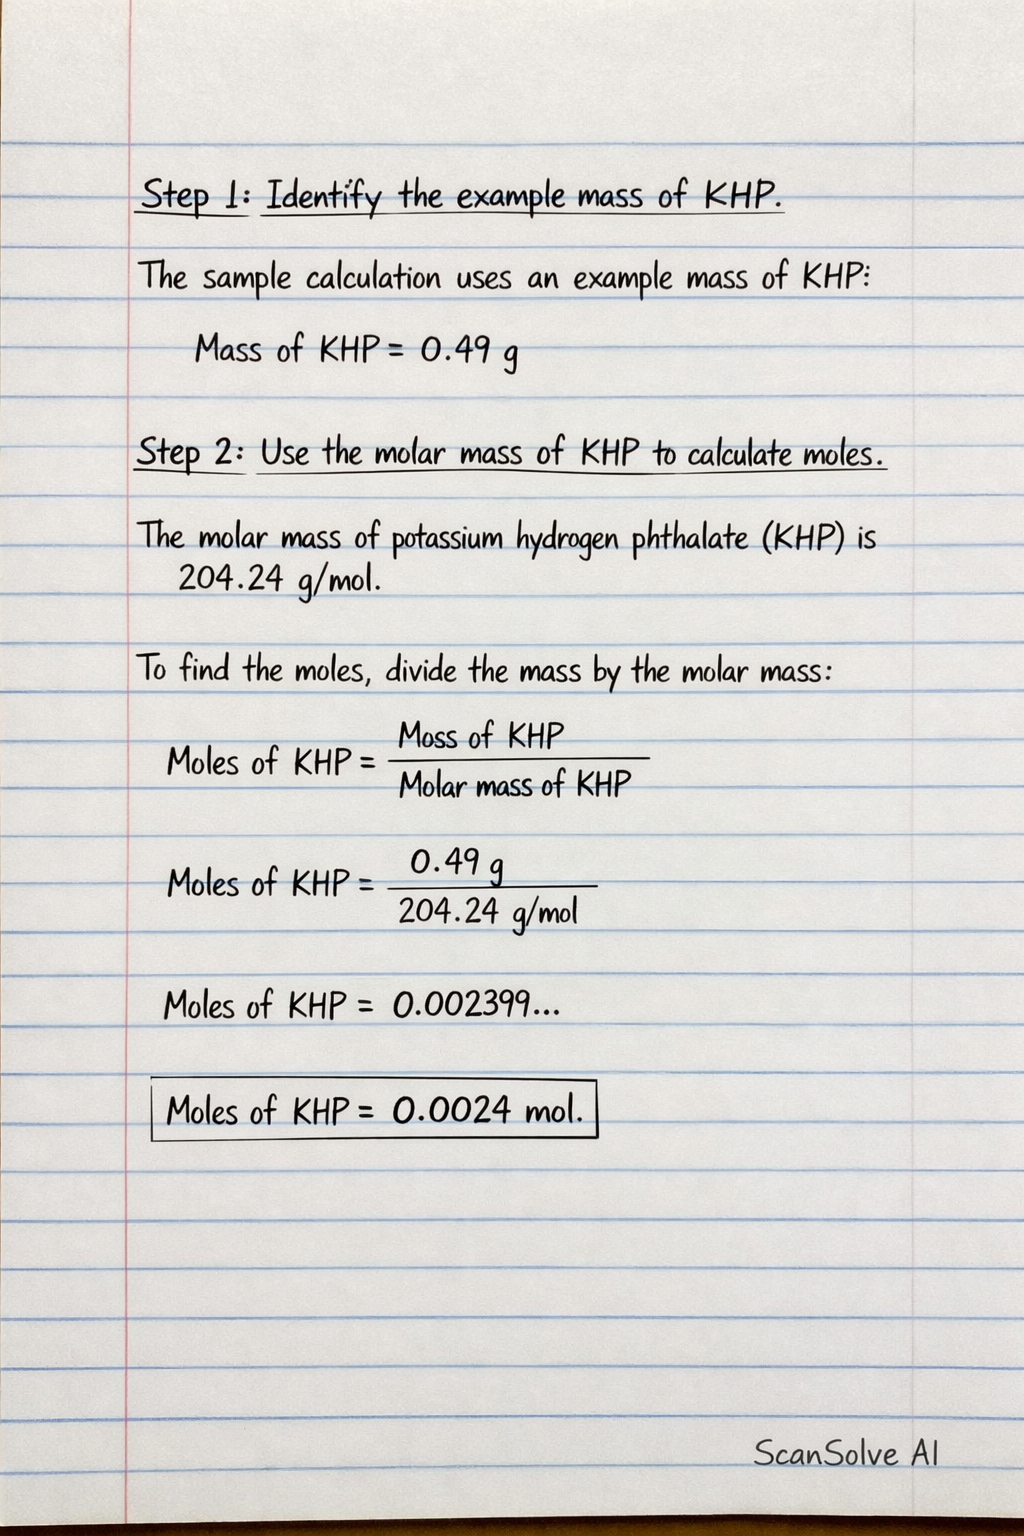 Step 1: Identify the example mass of KHP.
The sample calculation uses an example mass of KHP:
Mass of KHP = 0.49 g
Step 2: Use the molar mass of KHP to calculate moles.
The molar mass of potassium hydrogen phthalate (KHP) is
204.24 g/mol.
To find the moles, divide the mass by the molar mass:
Moles of KHP = Moss of KHP / Molar mass of KHP
Moles of KHP = 0.49 g / 204.24 g/mol
Moles of KHP = 0.002399...
Moles of KHP = 0.0024 mol.
ScanSolve AI